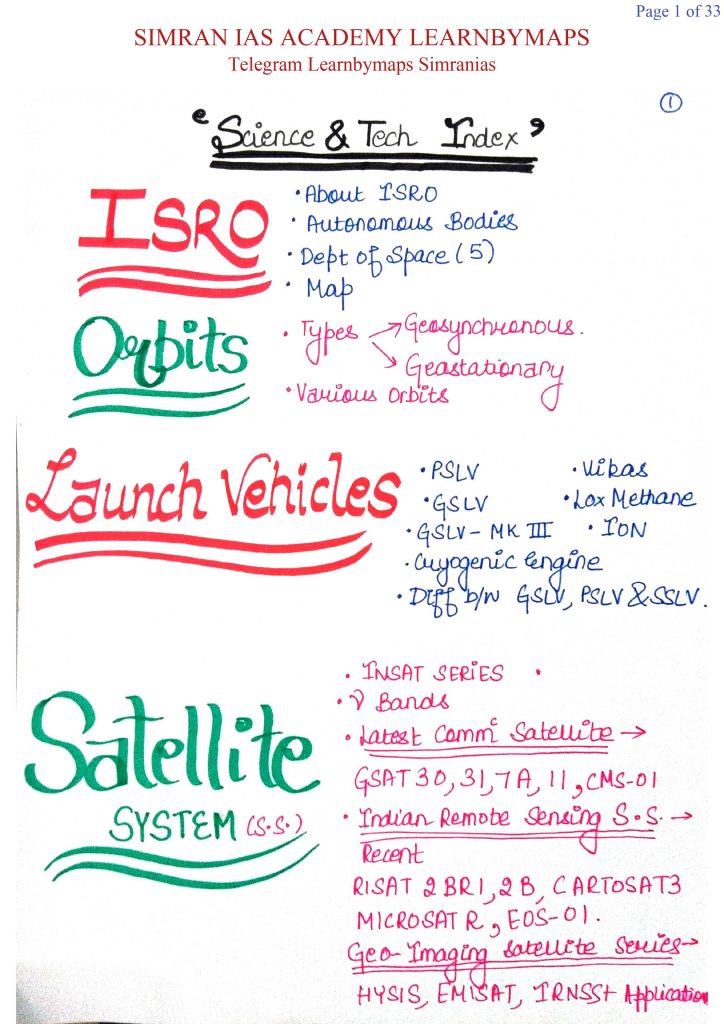 Page 1 of 33
SIMRAN IAS ACADEMY LEARNBYMAPS
Telegram Learnbymaps Simranias
1
"Science & Tech Index"
ISRO
• About ISRO
• Autonomous Bodies
• Dept of Space (5)
• Map
Orbits
• Types → Geosynchronous.
→ Geastationary
• Various orbits
Launch Vehicles
• PSLV • Vikas
• GSLV • Lox Methane
• GSLV - MK III • ION
• Cryogenic Engine
• Diff b/w GSLV, PSLV & SSLV.
Satellite
SYSTEM (S.S.)
• INSAT SERIES •
• ν Bands
• Latest Commⁿ Satellite →
GSAT 30, 31, 7A, 11, CMS-01
• Indian Remote Sensing S.S. →
Recent
RISAT 2BR1, 2B, CARTOSAT3
MICROSAT R, EOS-01.
Geo-Imaging Satellite Series →
HYSIS, EMISAT, IRNSS+ Application